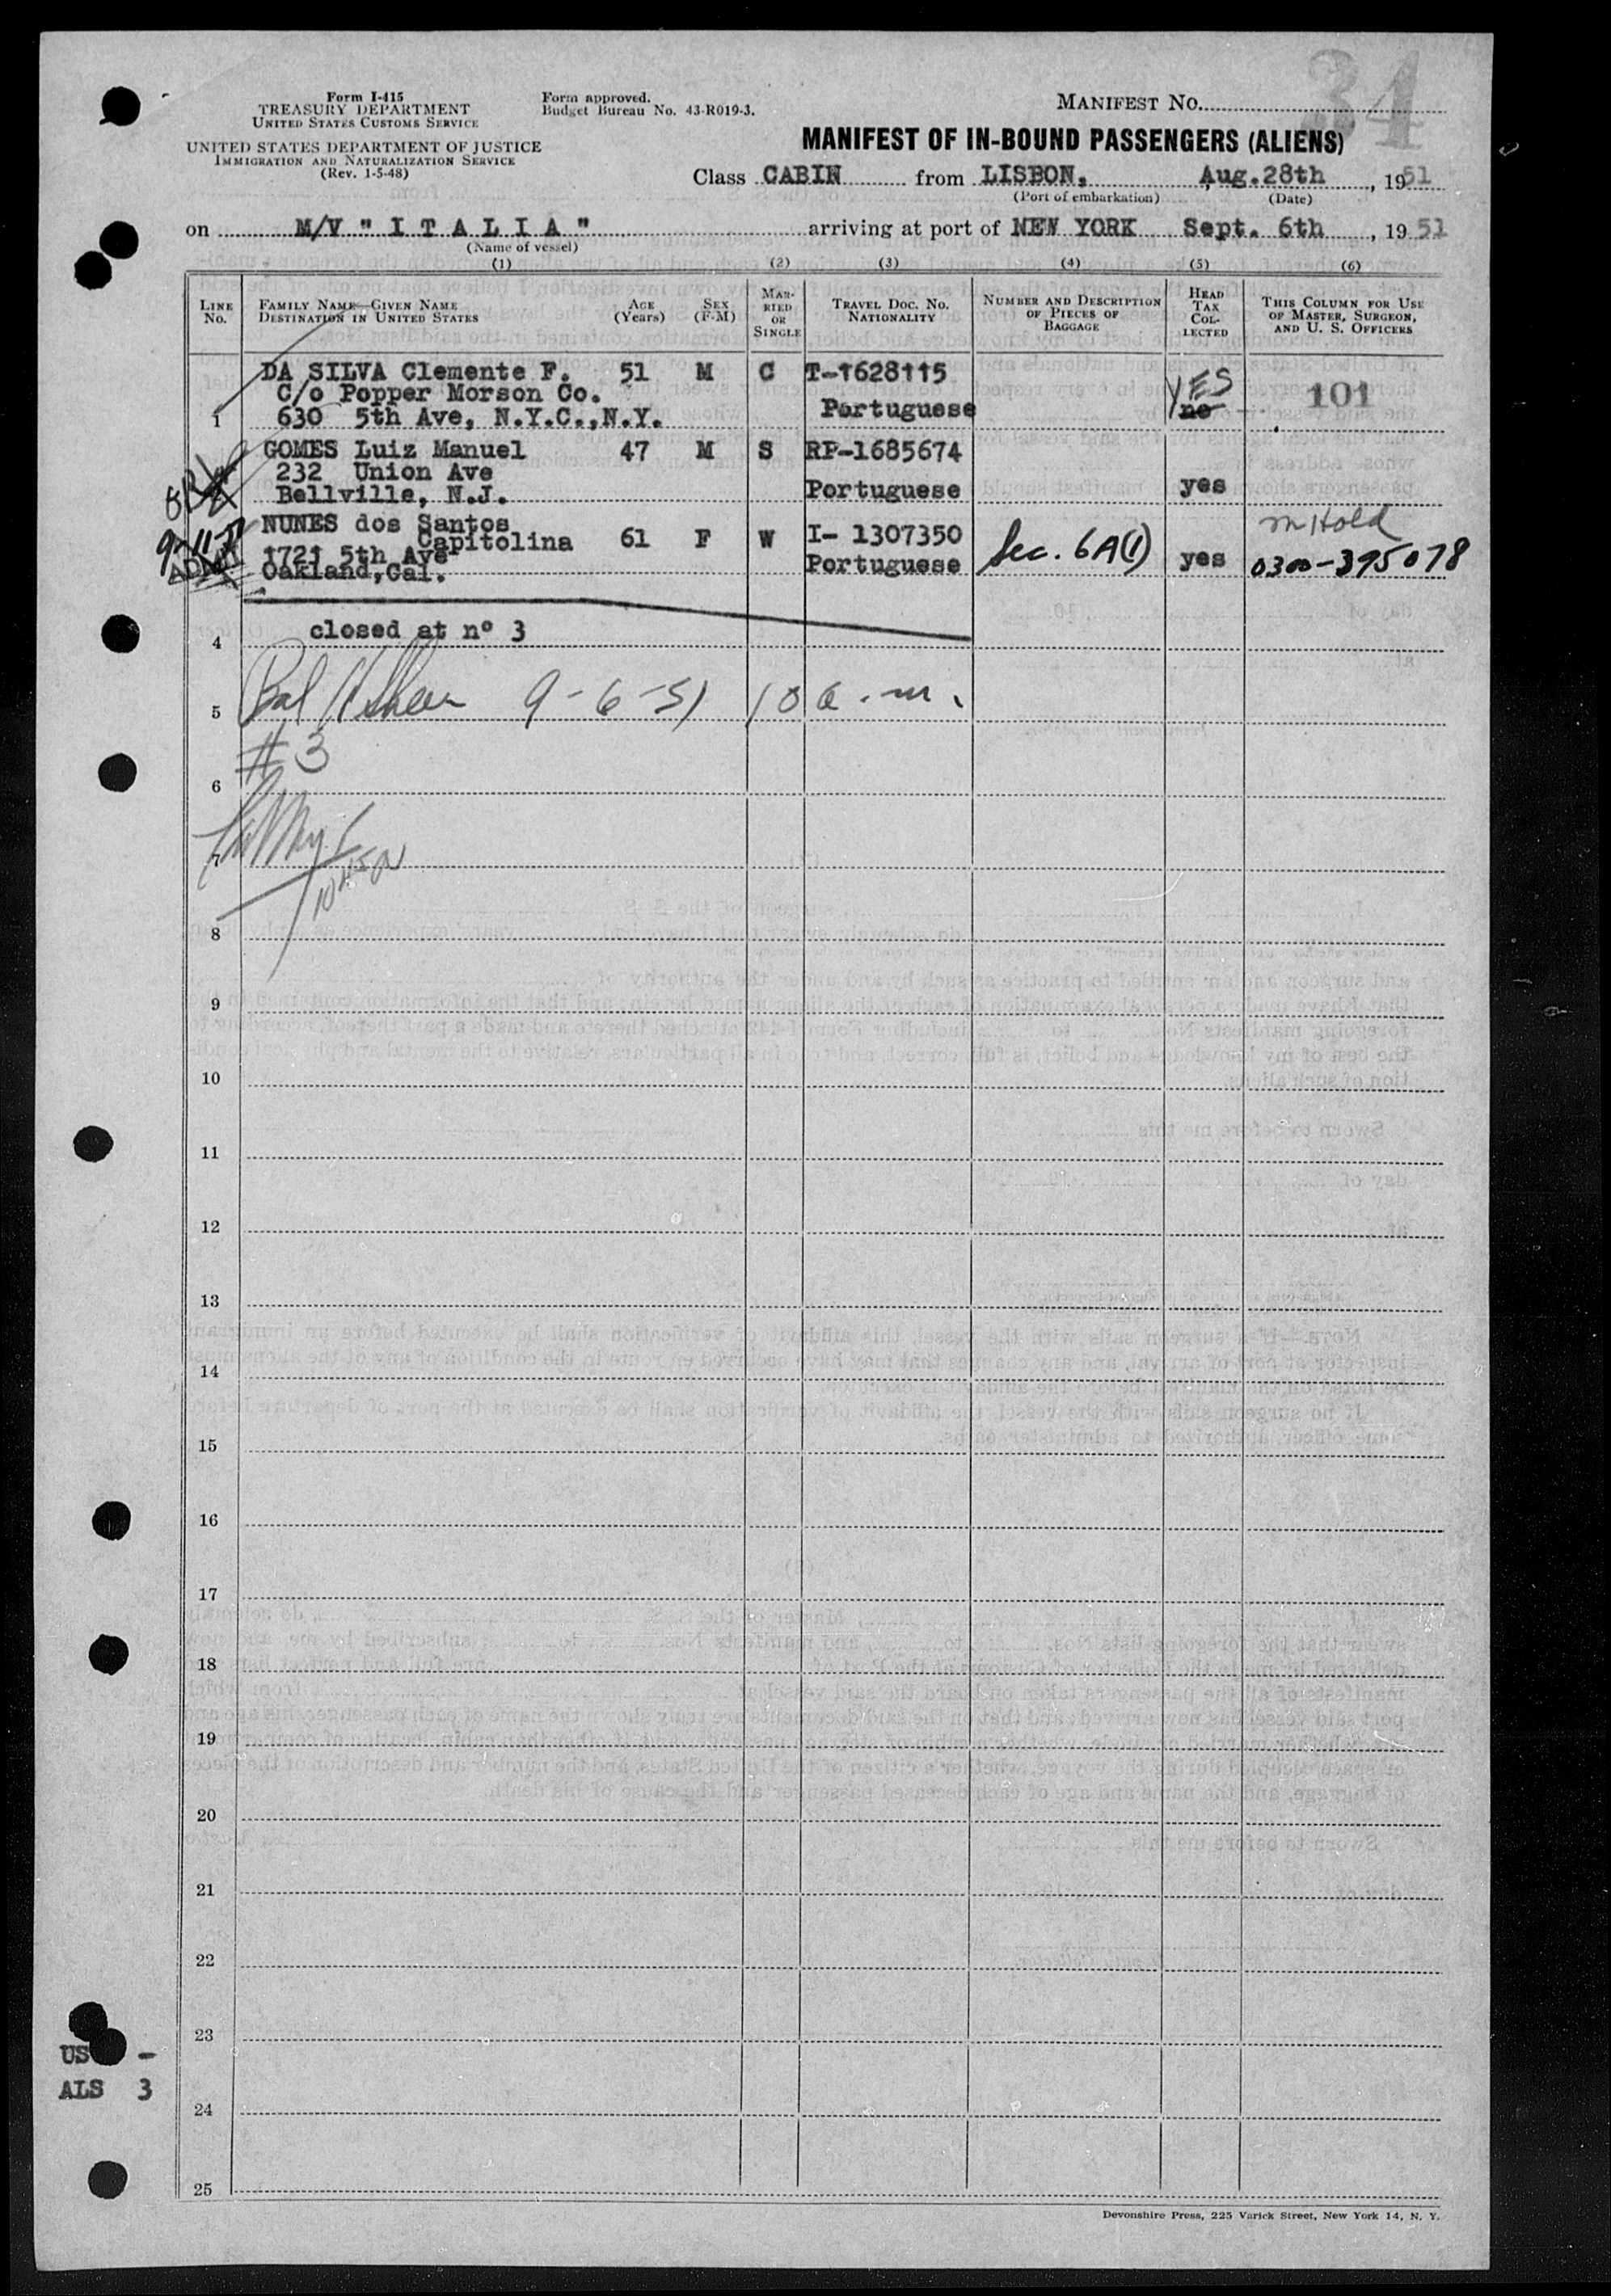 34
Form I-415
TREASURY DEPARTMENT
UNITED STATES CUSTOMS SERVICE
UNITED STATES DEPARTMENT OF JUSTICE
IMMIGRATION AND NATURALIZATION SERVICE
(Rev. 1-5-48)
Form approved.
Budget Bureau No. 43-R019-3.
MANIFEST NO.
MANIFEST OF IN-BOUND PASSENGERS (ALIENS)
Class CABIN from LISBON, Aug.28th, 1951
(Port of embarkation) (Date)
on M/V " I T A L I A " arriving at port of NEW YORK Sept. 6th, 1951
(Name of vessel)
(1) (2) (3) (4) (5) (6)
LINE NO.
FAMILY NAME—GIVEN NAME
DESTINATION IN UNITED STATES
AGE (Years)
SEX (F-M)
MARRIED OR SINGLE
TRAVEL DOC. NO. NATIONALITY
NUMBER AND DESCRIPTION OF PIECES OF BAGGAGE
HEAD TAX COLLECTED
THIS COLUMN FOR USE OF MASTER, SURGEON, AND U. S. OFFICERS
DA SILVA Clemente F. 51 M C T-1628115
C/o Popper Morson Co. YES 101
1 630 5th Ave, N.Y.C.,N.Y. Portuguese no
GOMES Luiz Manuel 47 M S RP-1685674
232 Union Ave
Bellville, N.J. Portuguese yes
NUNES dos Santos
Capitolina 61 F W I- 1307350 Sec. 6A(1) Hold
1721 5th Ave
Oakland,Cal. Portuguese yes 0300-395078
9-11-51
4 closed at nº 3
5 9-6-51 10 a.m.
# 3
6
7
8
9
10
11
12
13
14
15
16
17
18
19
20
21
22
23
US -
ALS 3
24
25
Devonshire Press, 225 Varick Street, New York 14, N. Y.